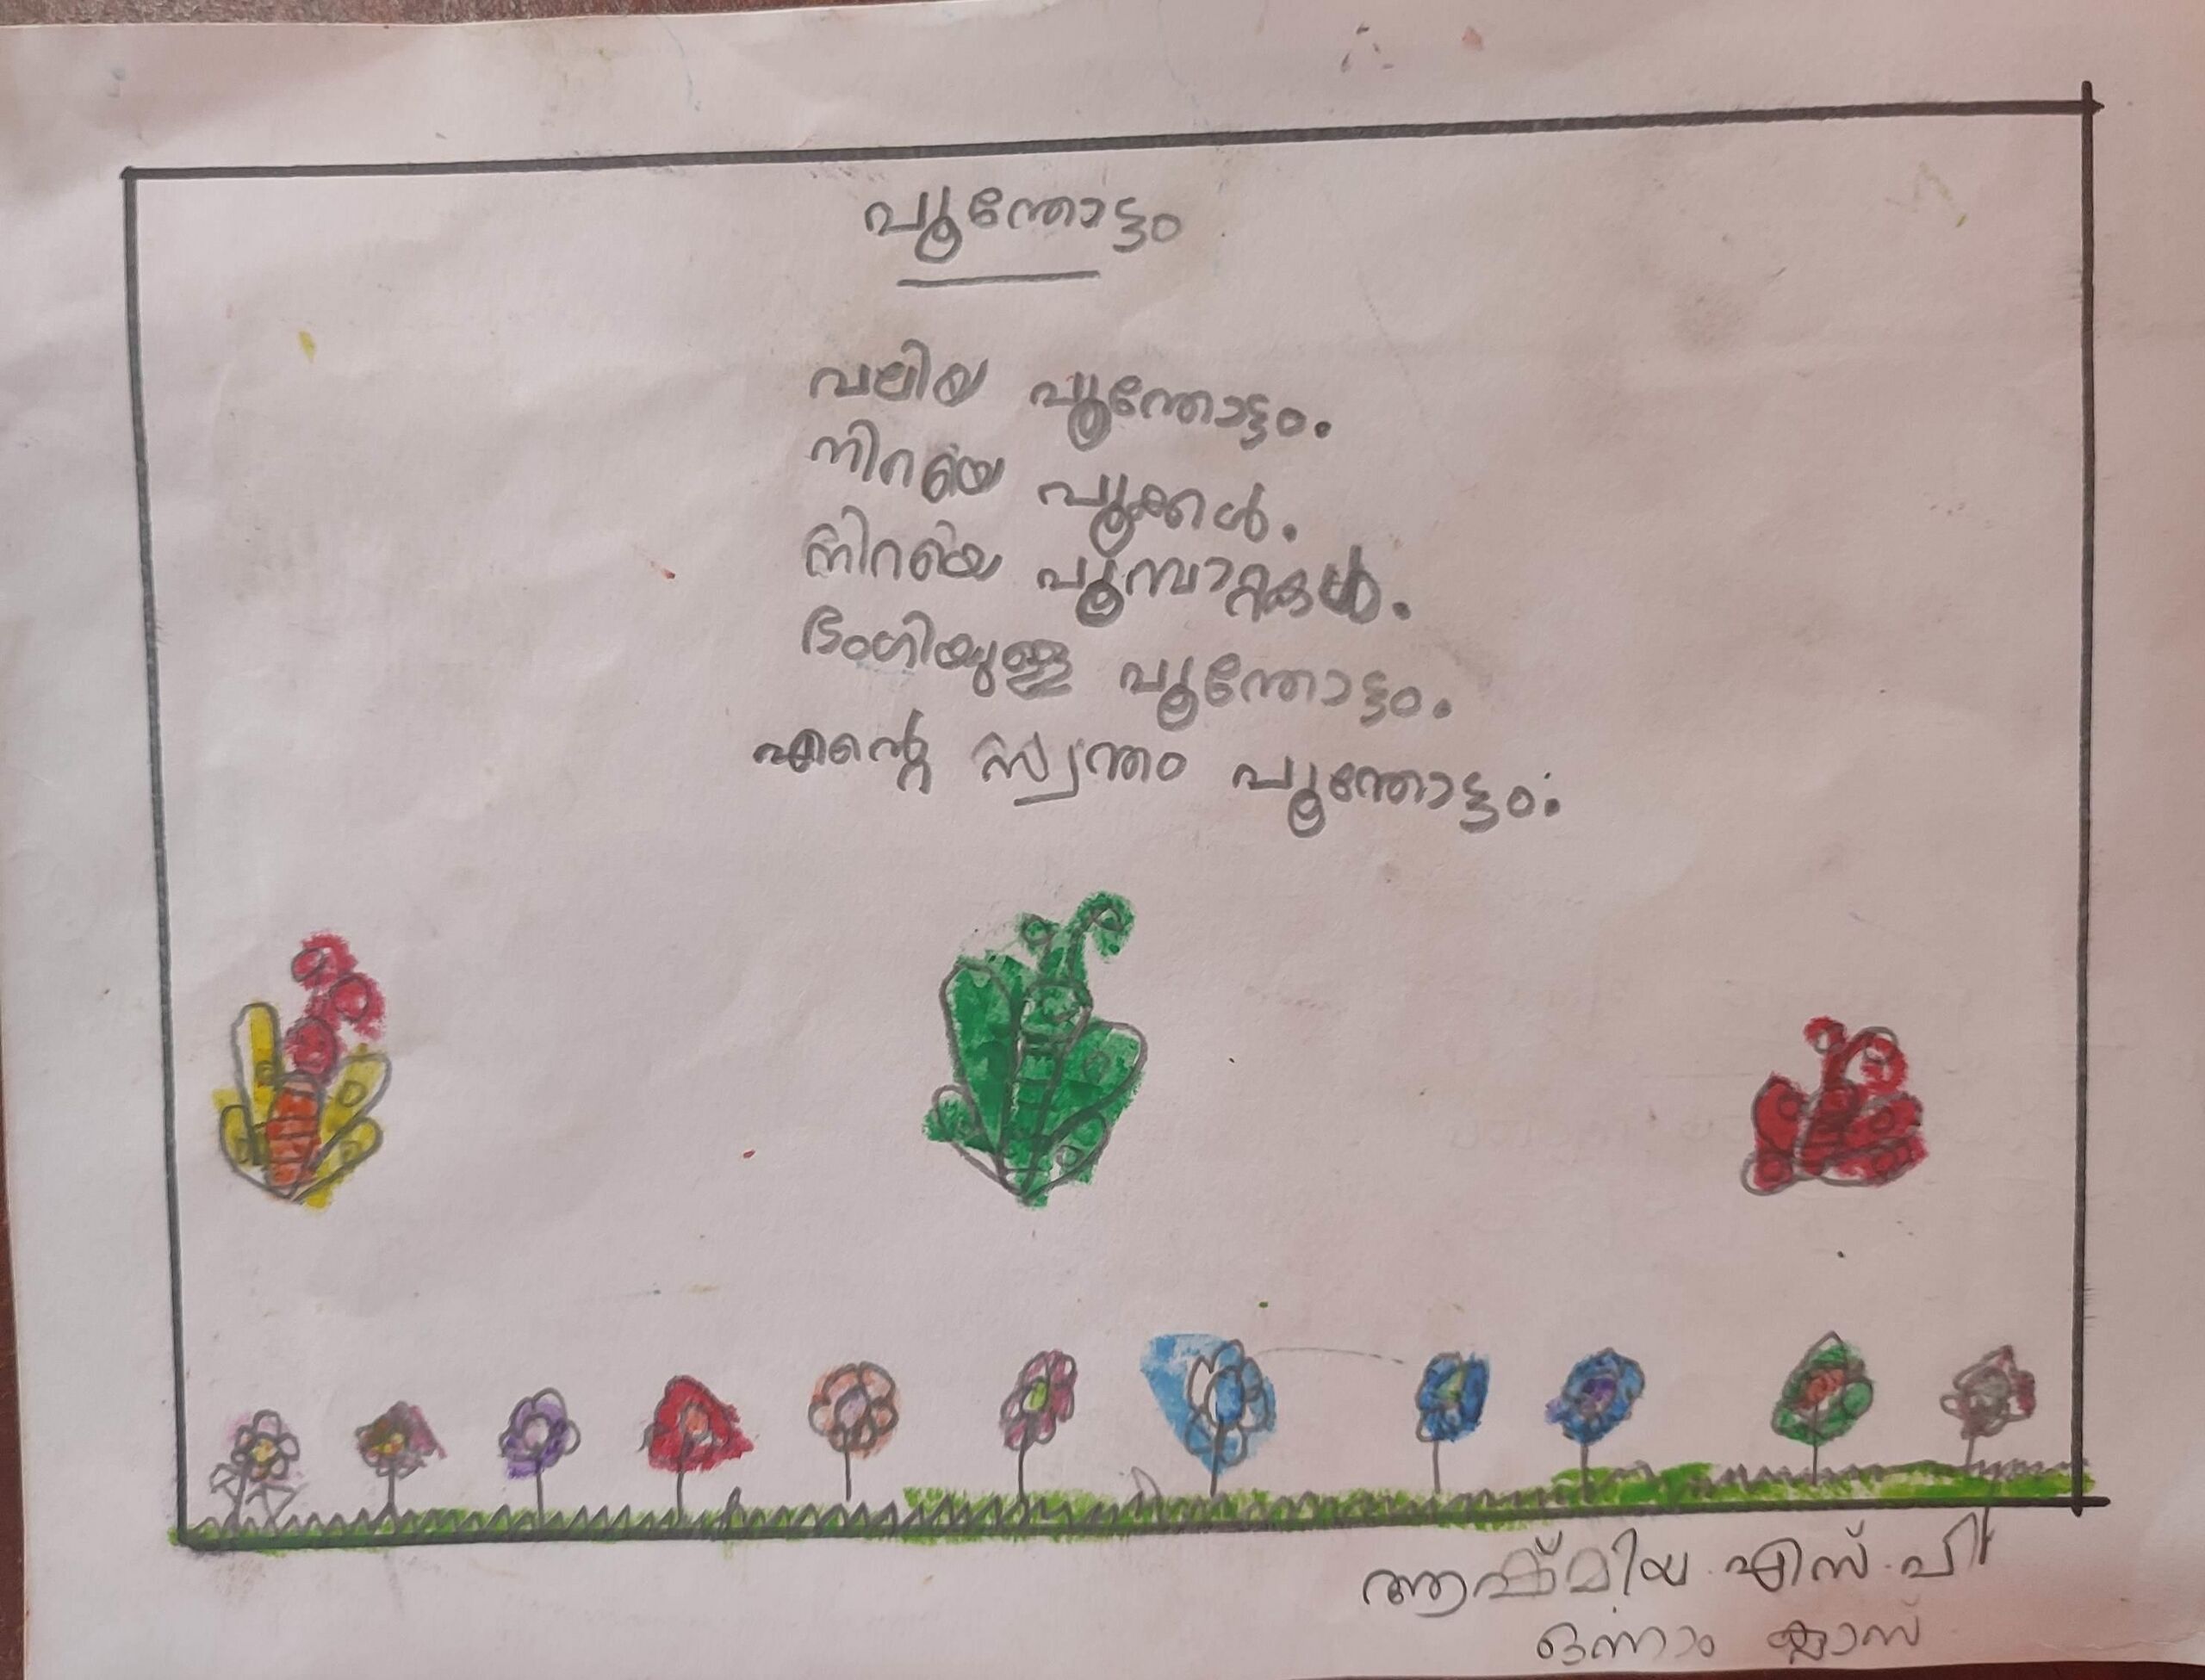 പൂന്തോട്ടം
വലിയ പൂന്തോട്ടം.
നിറയെ പൂക്കൾ.
നിറയെ പൂമ്പാറ്റകൾ.
ഭംഗിയുള്ള പൂന്തോട്ടം.
എന്റെ സ്വന്തം പൂന്തോട്ടം.
ആഷ്മിയ. എസ്. പി
ഒന്നാം ക്ലാസ്